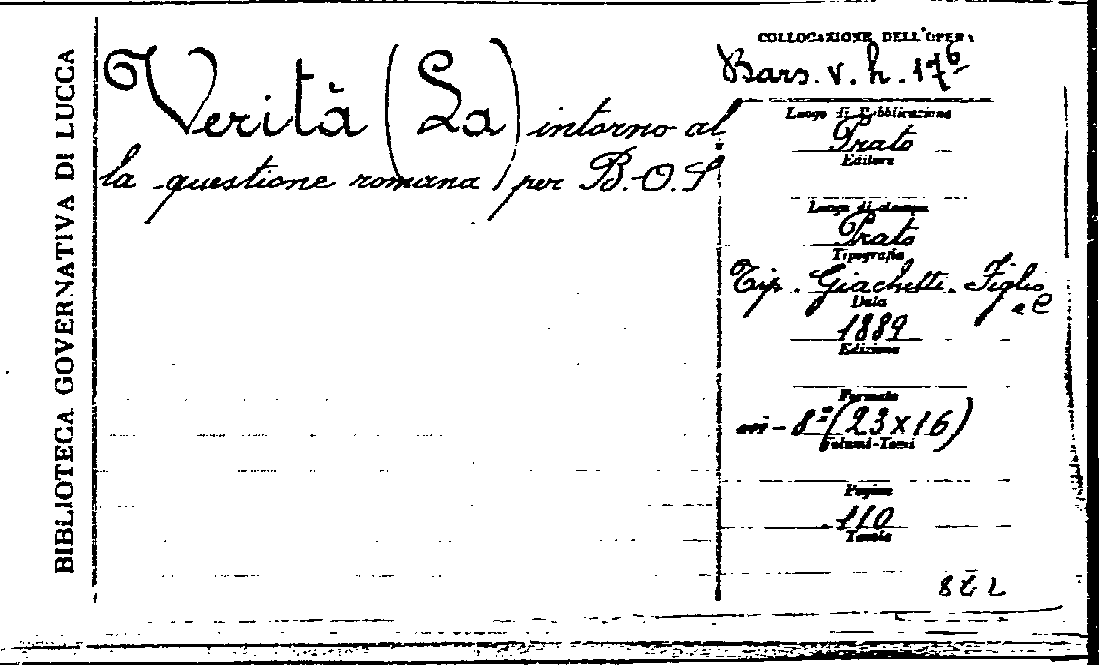 BIBLIOTECA GOVERNATIVA DI LUCCA
Verità (La) intorno al
la questione romana / per B.O.S.
COLLOCAZIONE DELL'OPERA
Bars. V. h. 17⁶
Luogo di Pubblicazione
Prato
Editore
Luogo di stampa
Prato
Tipografia
Tip. Giachetti. Figlio
e C
Data
1889
Edizione
Formato
in-8º (23x16)
Volumi-Tomi
Pagine
110
Tavole